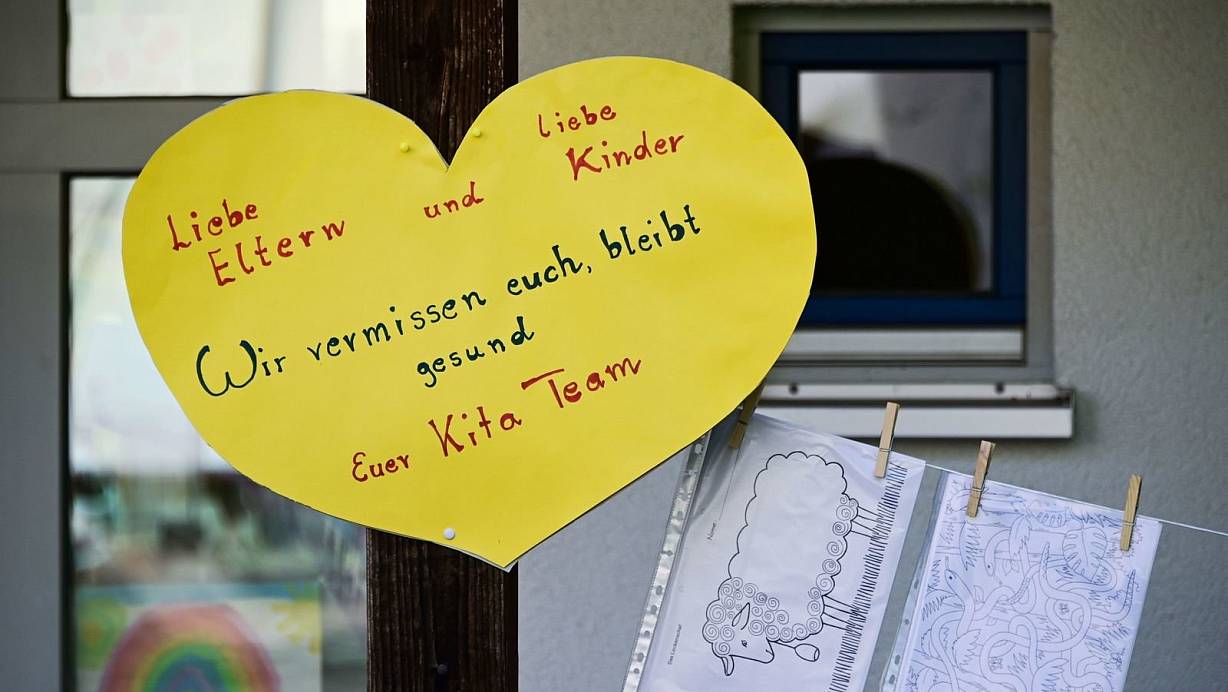 Liebe
Eltern
und
liebe
Kinder
Wir vermissen euch, bleibt
gesund
Euer Kita Team
Name: